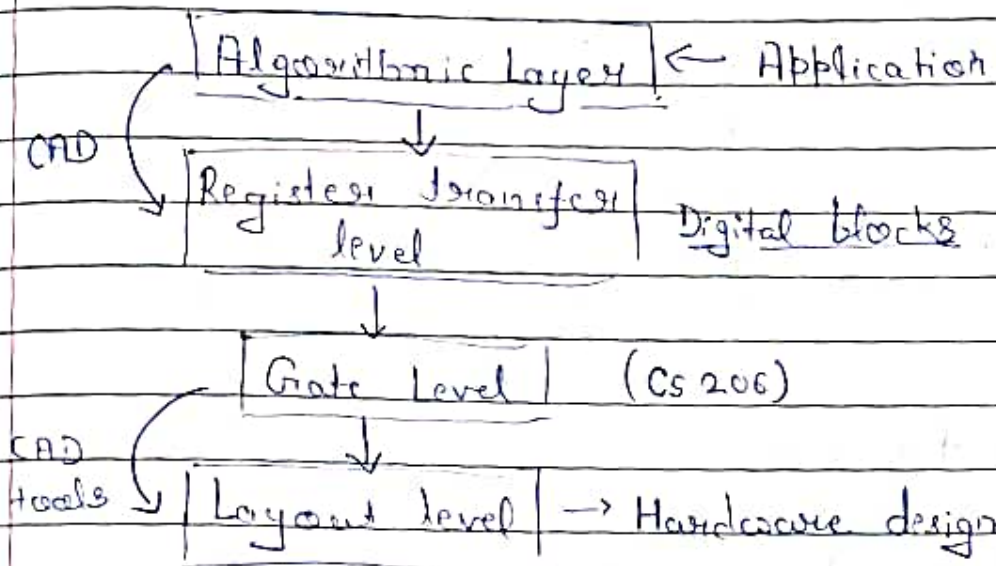 Algorithmic Layer ← Application
CAD
Register transfer
level
Digital blocks
Gate Level (CS 206)
CAD
tools
Layout level → Hardware design